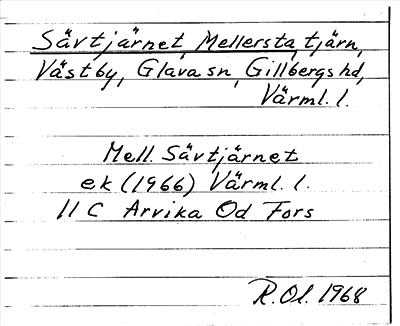 Sävtjärnet, Mellersta, tjärn,
Västby, Glava sn, Gillbergs hd,
Värml. l.
Mell. Sävtjärnet
ek (1966) Värml. l.
11 C Arvika Od Fors
R.Ol. 1968